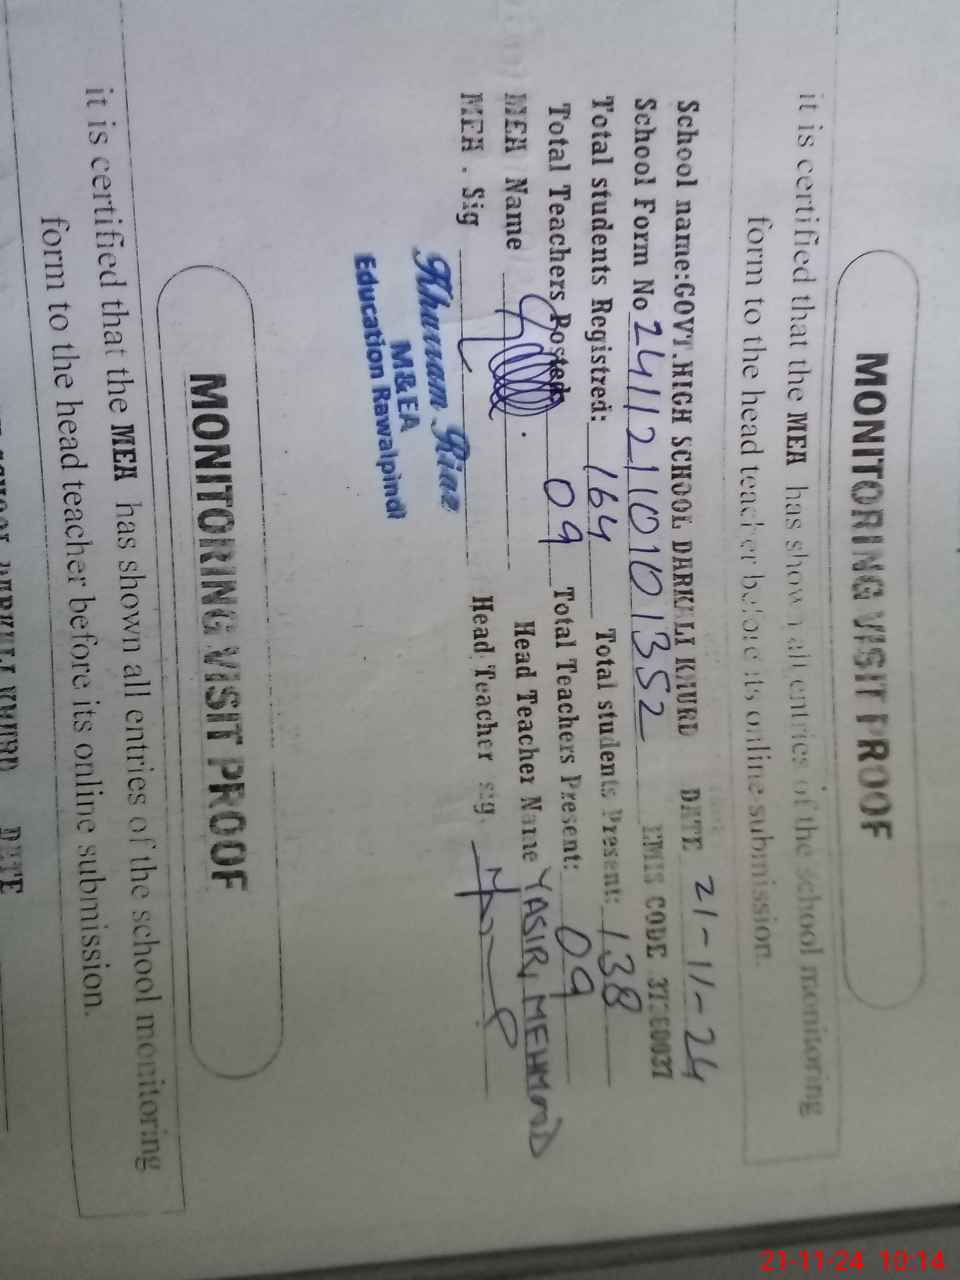 MONITORING VISIT PROOF
it is certified that the MEA has shown all entries of the school monitoring
form to the head teacher before its online submission.
School name:GOVT.HIGH SCHOOL DARKALI KHURD DATE 21-11-24
School Form No 2411211010101352 EMIS CODE
Total students Registred: 164 Total students Present: 138
Total Teachers Posted 09 Total Teachers Present: 09
MEA Name Head Teacher Name YASIR MEHMOOD
MEA . Sig Head Teacher sig.
Khurram Riaz
M&EA
Education Rawalpindi
MONITORING VISIT PROOF
it is certified that the MEA has shown all entries of the school monitoring
form to the head teacher before its online submission.
SCHOOL DARKALI KHURD DATE
21-11-24 10:14